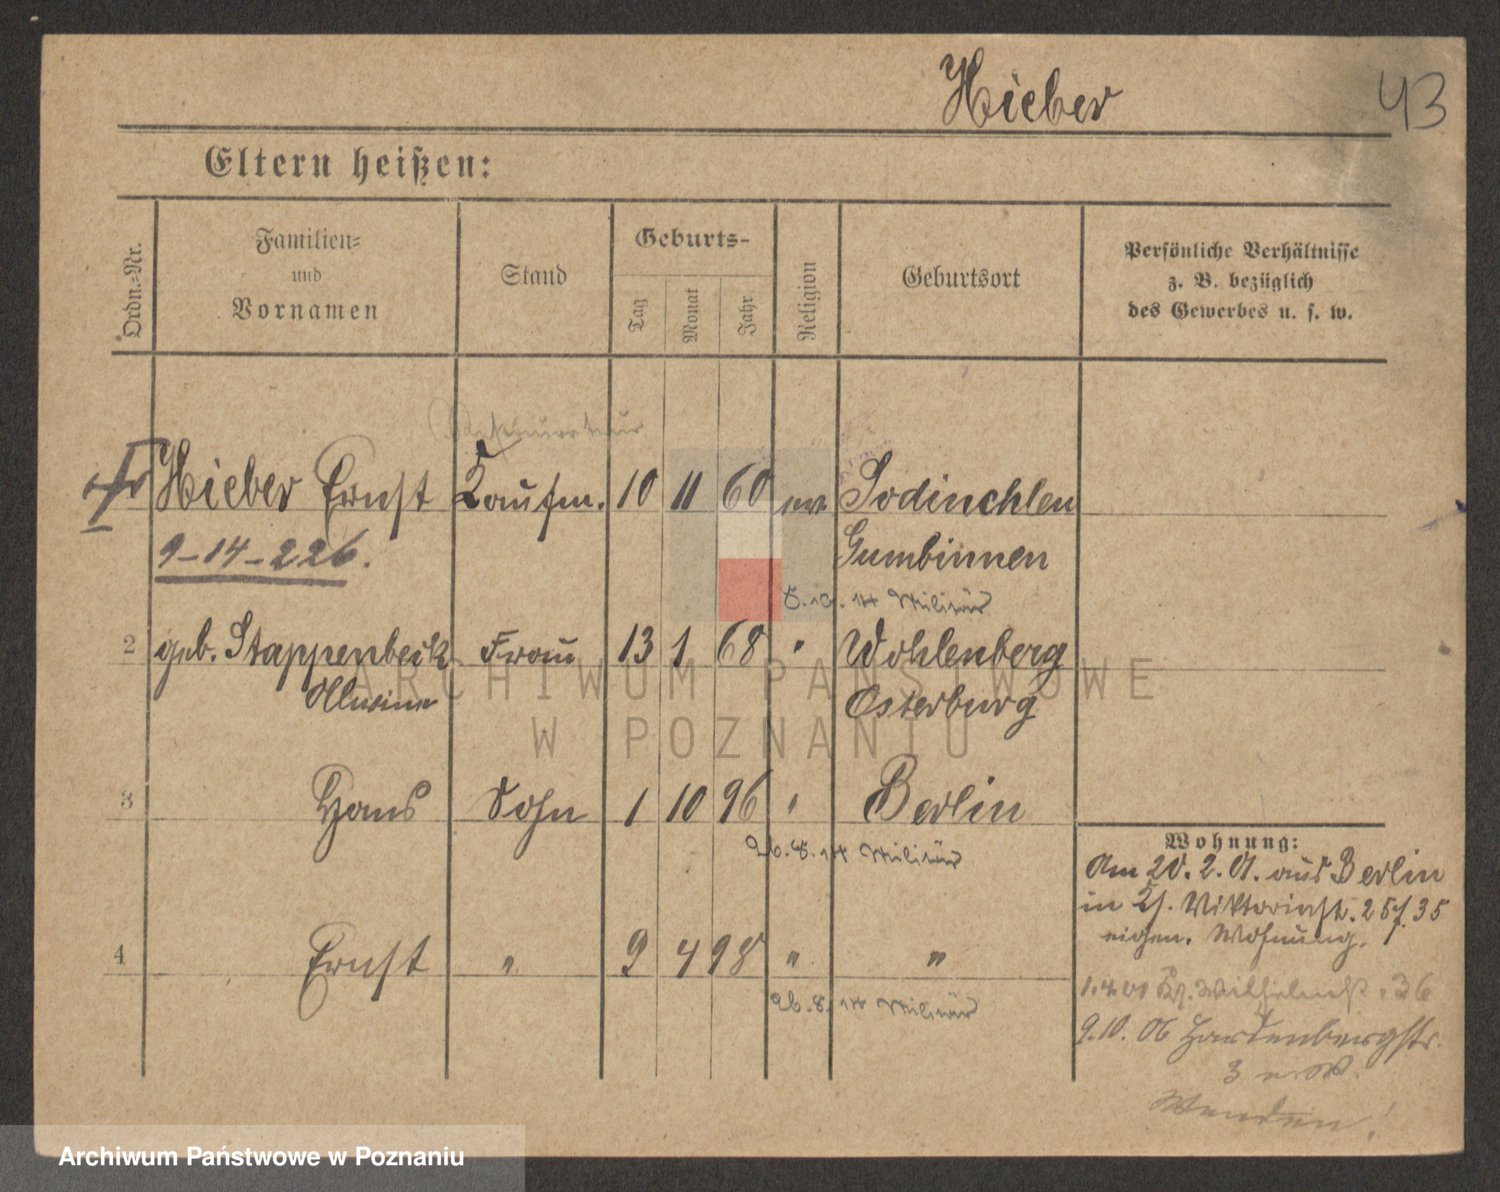 Hieber
43
Eltern heißen:
Ordn.-Nr.
Familien-
und
Vornamen
Stand
Geburts-
Tag
Monat
Jahr
Religion
Geburtsort
Persönliche Verhältnisse
z. B. bezüglich
des Gewerbes u. s. w.
Restaurateur
Hieber Ernst Kaufm. 10 11 60 ev. Sodinehlen
9-14-226. Gumbinnen
8.10.14 Militär
2 geb. Stappenbeck Frau 13 1 68 " Wohlenberg
Alwine Osterburg
3 Hans Sohn 1 10 96 " Berlin
26.8.14 Militär
4 Ernst " 9 4 98 " "
26.8.14 Militär
Wohnung:
Am 20.2.01. aus Berlin
in Viktoriast. 25 35
eigen. Wohnung.
1.4.01 Wilhelmst. 36
9.10.06 Hardenbergstr.
3 e. W.
Wenden!
ARCHIWUM PAŃSTWOWE
W POZNANIU
Archiwum Państwowe w Poznaniu